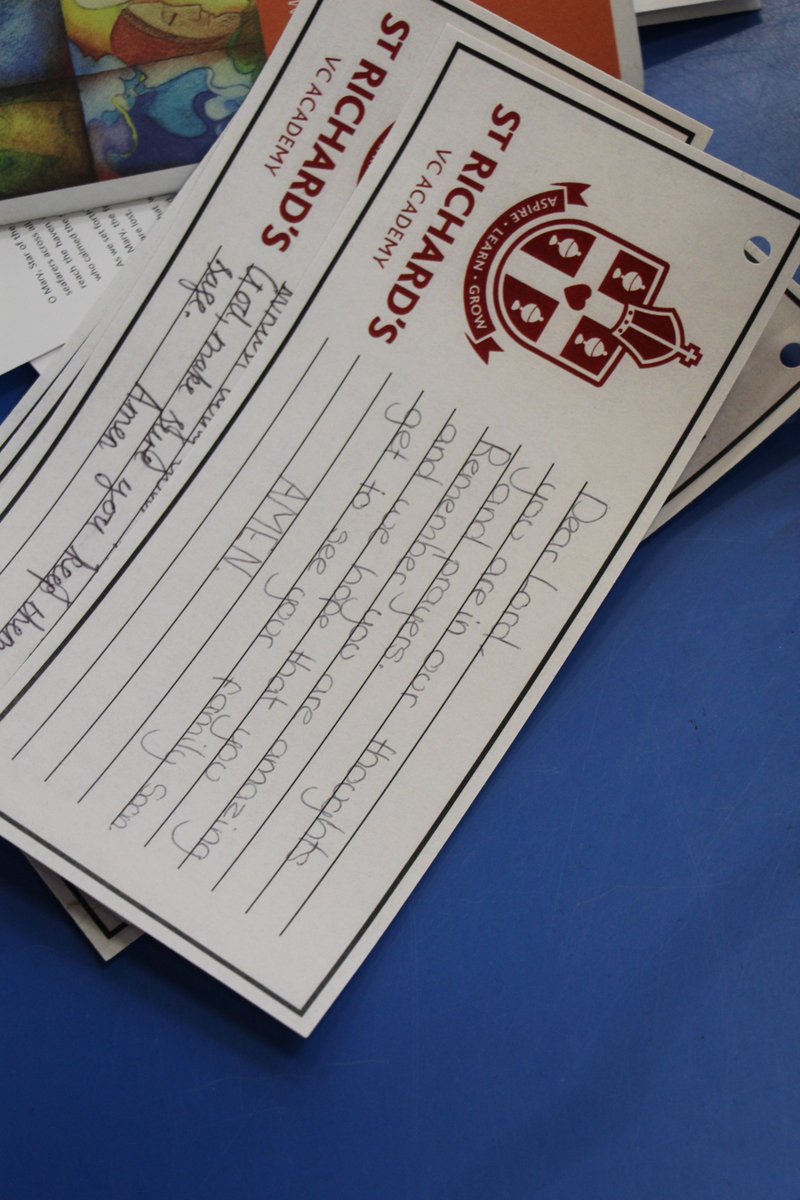 ST RICHARD'S
VC ACADEMY
ASPIRE · LEARN · GROW
Dear Lord,
you are in our thoughts
and prayers.
Remember you are amazing
and we hope that you
get to see your family soon.
AMEN.
ST RICHARD'S
VC ACADEMY
God, make sure you keep them
safe.
Amen
O Mary, Star of the
seafarers across a
reach the haven
who calmed the
As we set fort
Mary, the
we are lost